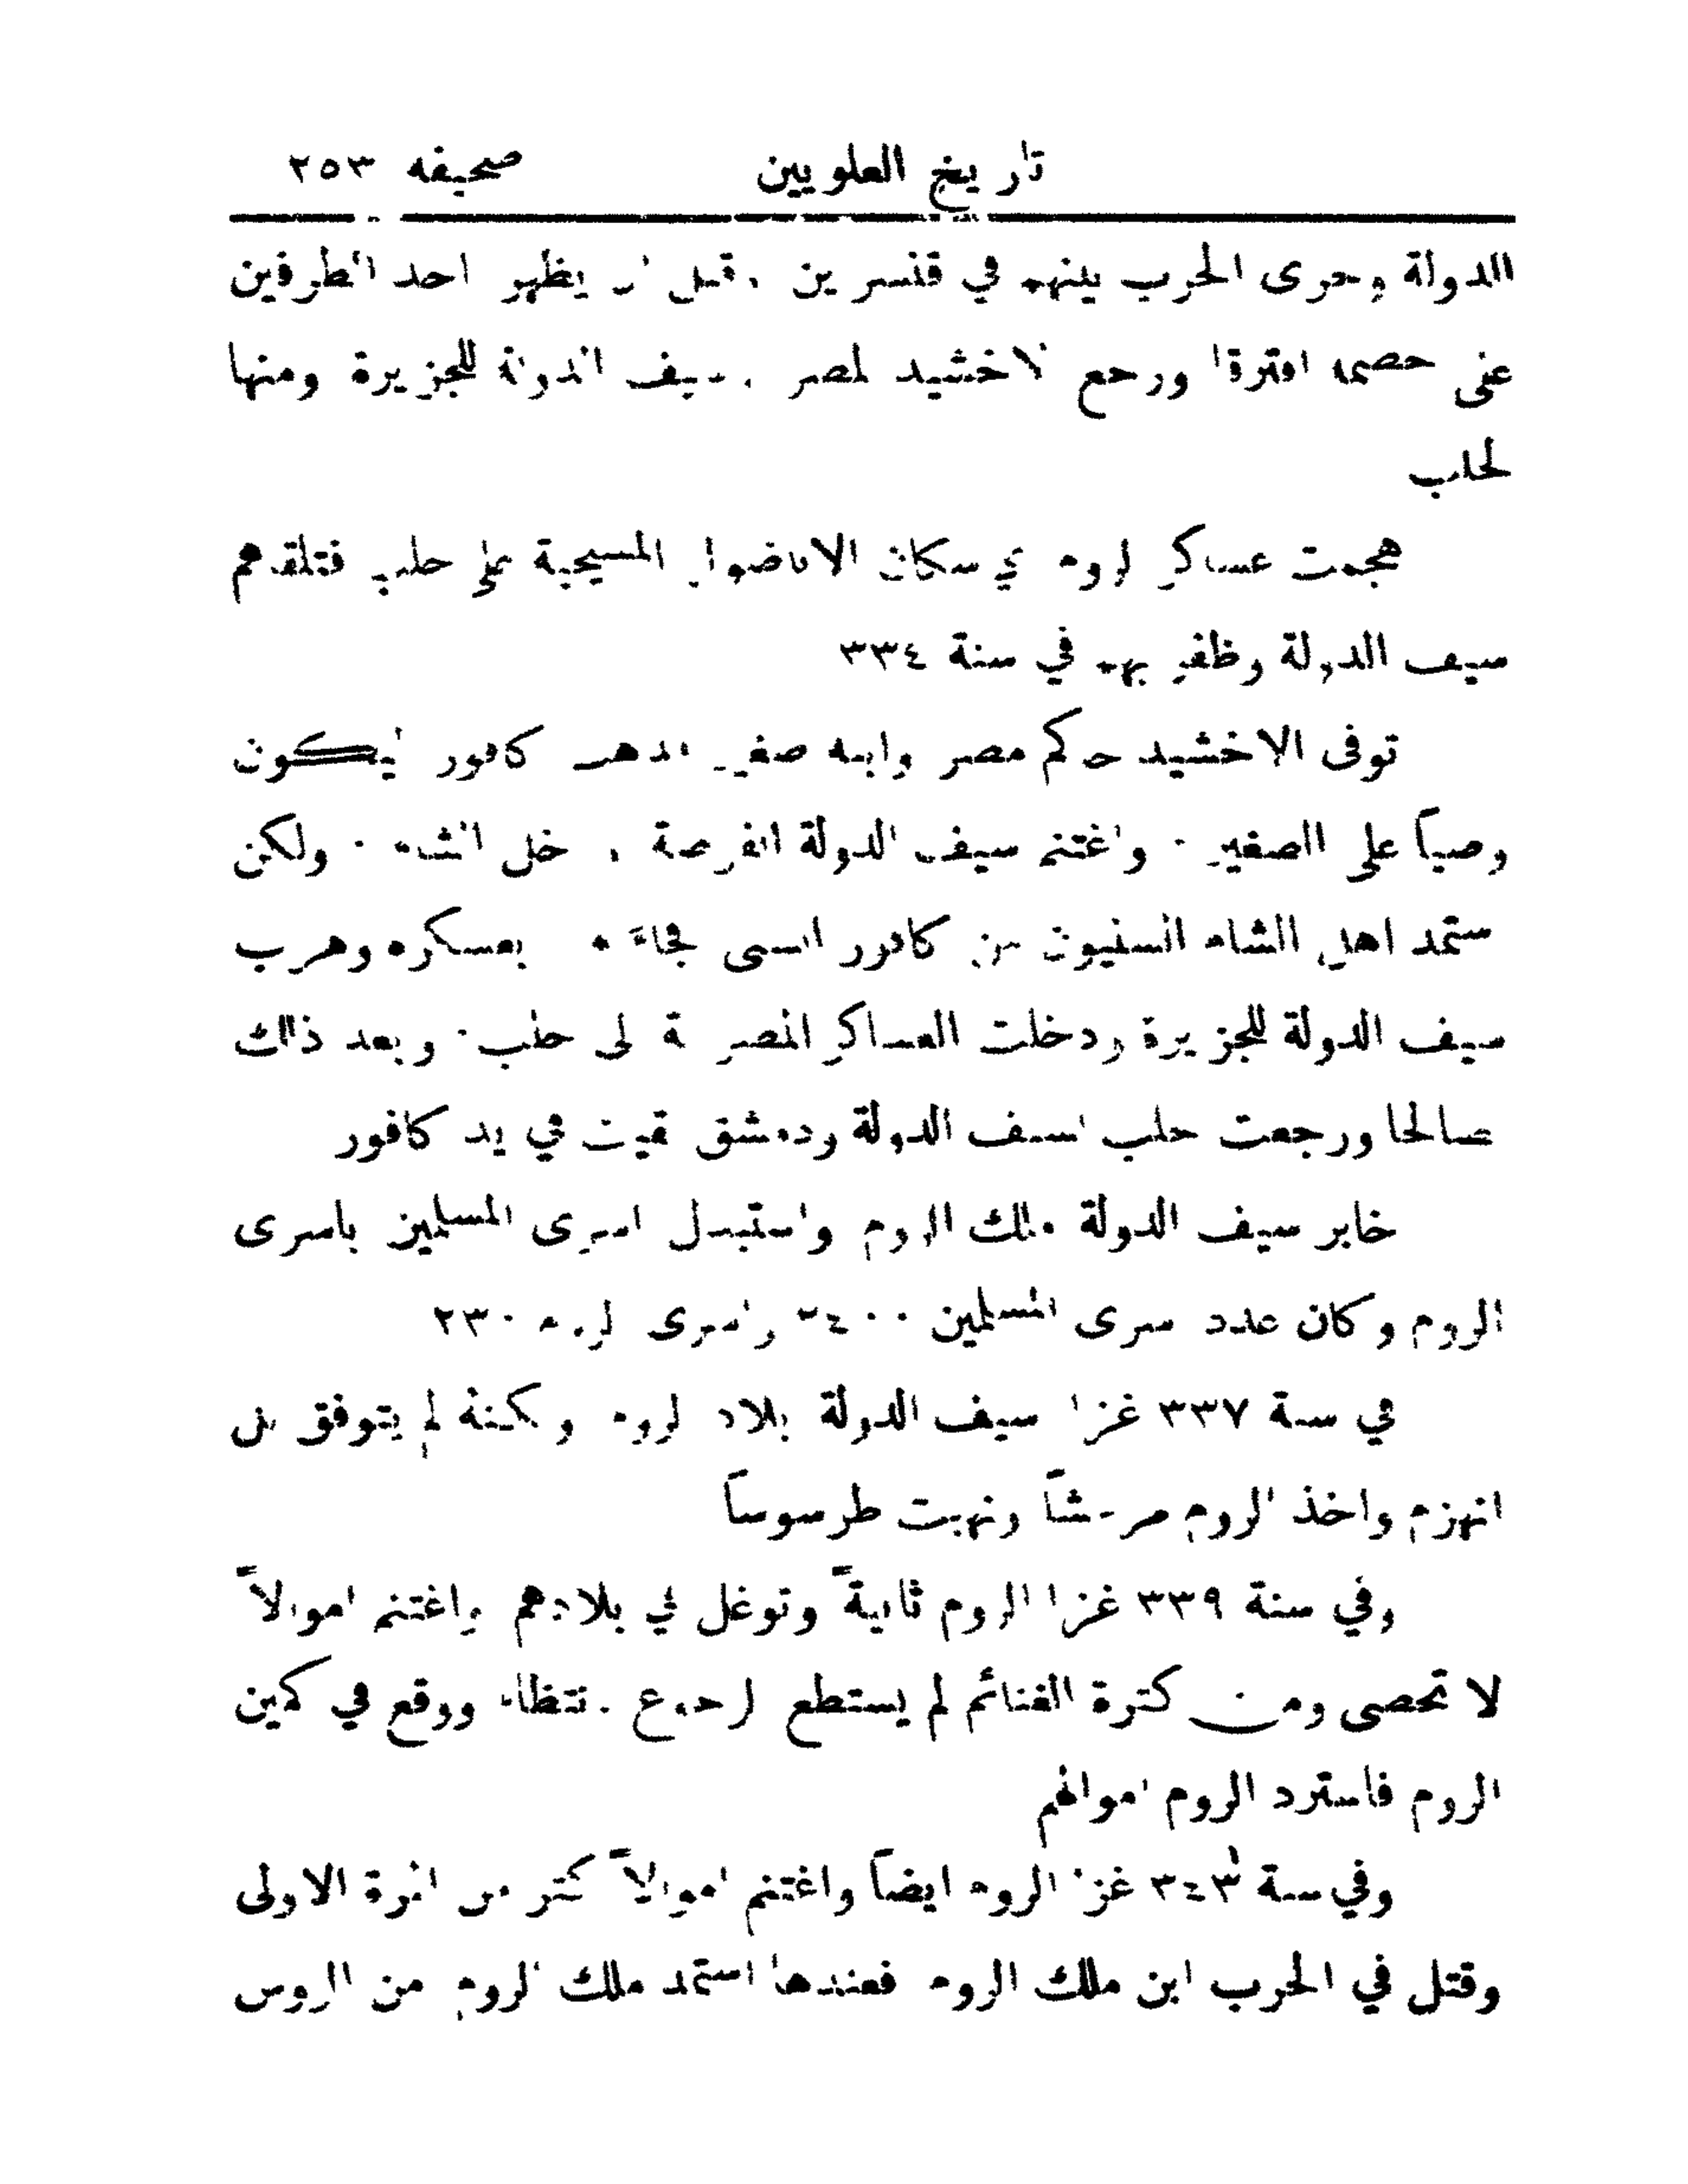 تاريخ العلويين صحيفه ٢٥٣
الدولة وجرى الحرب بينهم في قنسرين وقبل ان يظهر احد الطرفين
على خصمه افترقا ورجع الاخشيد لمصر وسيف الدولة للجزيرة ومنها
لحلب
هجمت عساكر الروم اي سكان الاناضول المسيحية على حلب فتلقاهم
سيف الدولة وظفر بهم في سنة ٣٣٤
توفى الاخشيد حاكم مصر وابنه صغير كافور ليكون
وصياً على الصغير · واغتنم سيف الدولة الفرصة ودخل الشام · ولكن
استمد اهل الشام السنيون من كافور السني فجاءَ بعسكره وهرب
سيف الدولة للجزيرة ودخلت العساكر المصرية الى حلب · وبعد ذلك
تصالحا ورجعت حلب لسيف الدولة ودمشق بقيت في يد كافور
خابر سيف الدولة ملك الروم واستبدل اسرى المسلمين باسرى
الروم وكان عدد اسرى المسلمين ٢٤٠٠ واسرى الروم ٢٣٠
في سنة ٣٣٧ غزا سيف الدولة بلاد الروم ولكنه لم يتوفق بل
انهزم واخذ الروم مرعشاً ونهبت طرسوساً
وفي سنة ٣٣٩ غزا الروم ثانيةً وتوغل في بلادهم واغتنم اموالاً
لا تحصى ومن كثرة الغنائم لم يستطع الرجوع بانتظام ووقع في كمين
الروم فاسترد الروم اموالهم
وفي سنة ٣٤٣ غزا الروم ايضاً واغتنم اموالاً اكثر من المرة الاولى
وقتل في الحرب ابن ملك الروم فعندها استمد ملك الروم من الروس